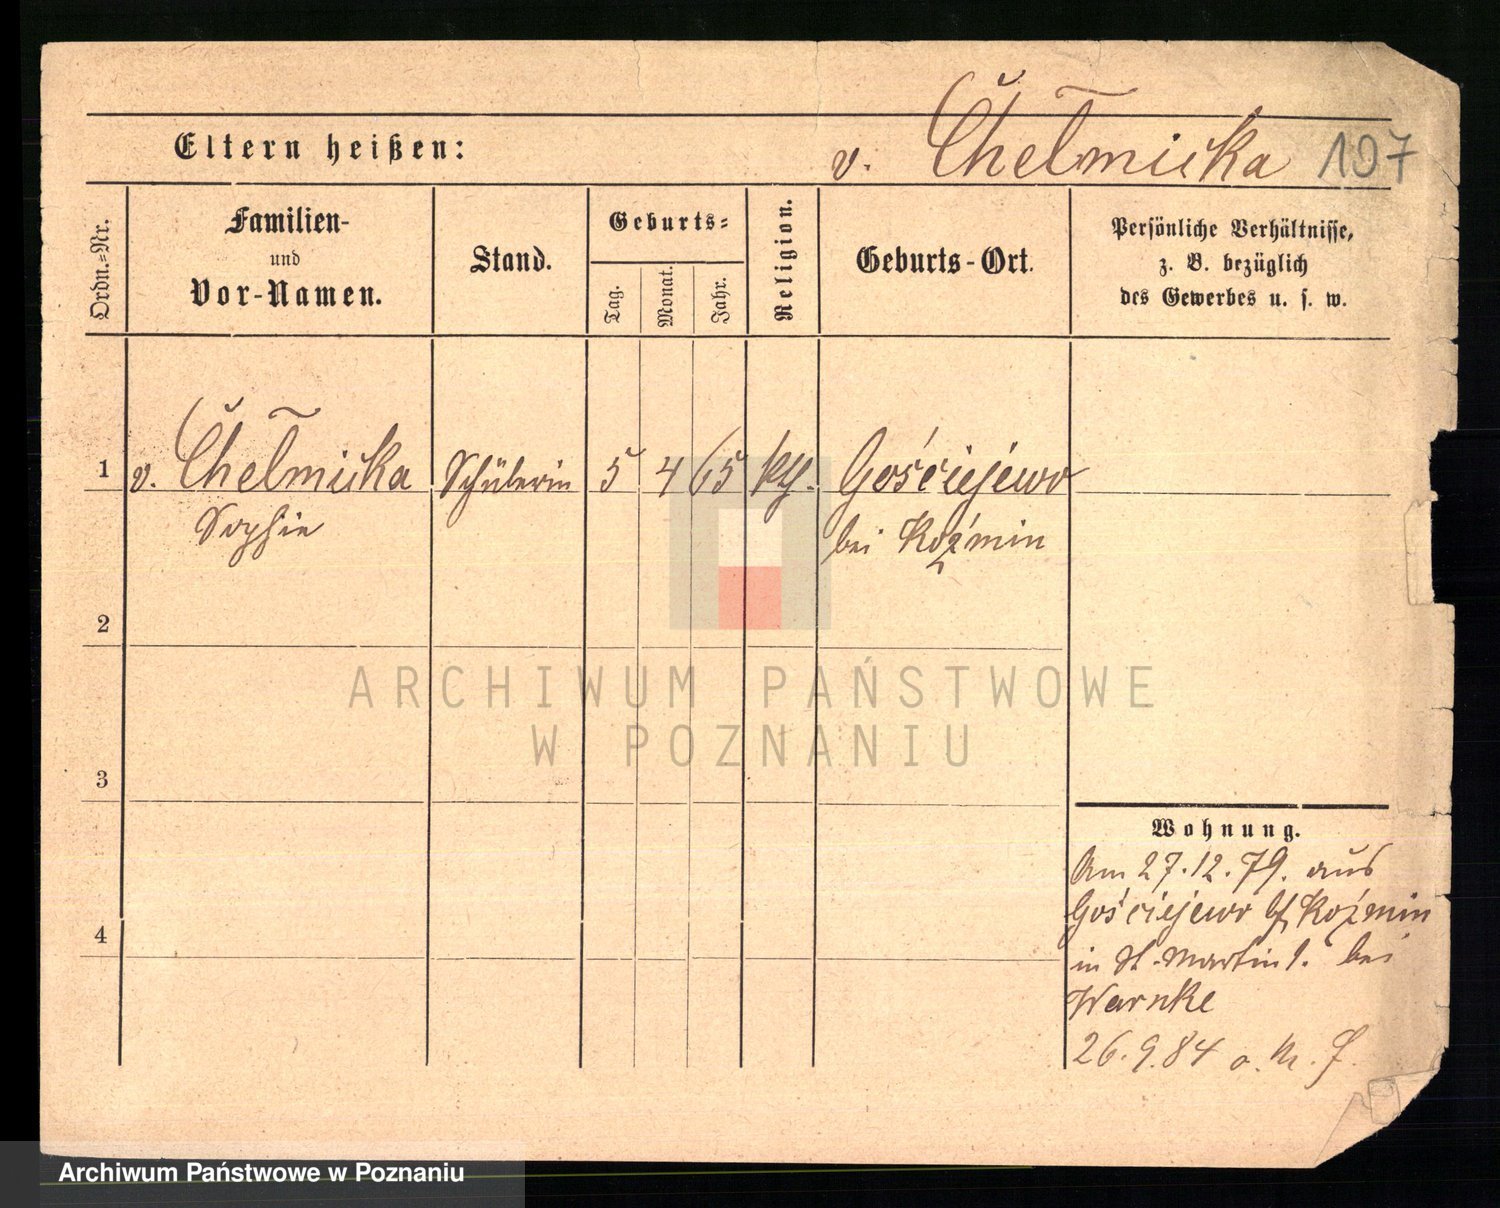 Eltern heißen: v. Chełmicka 107
Ordn.=Nr.
Familien-
und
Vor-Namen.
Stand.
Geburts=
Tag.
Monat.
Jahr.
Religion.
Geburts-Ort.
Persönliche Verhältnisse,
z. B. bezüglich
des Gewerbes u. s. w.
1 v. Chełmicka Schülerin 5 4 65 kth. Gościejewo
Sophie bei Koźmin
2
3
4
Wohnung.
Am 27.12.79. aus
Gościejewo b/ Koźmin
in St. Martin 1. bei
Warnke
26.9.84 o. M.
ARCHIWUM PAŃSTWOWE
W POZNANIU
Archiwum Państwowe w Poznaniu